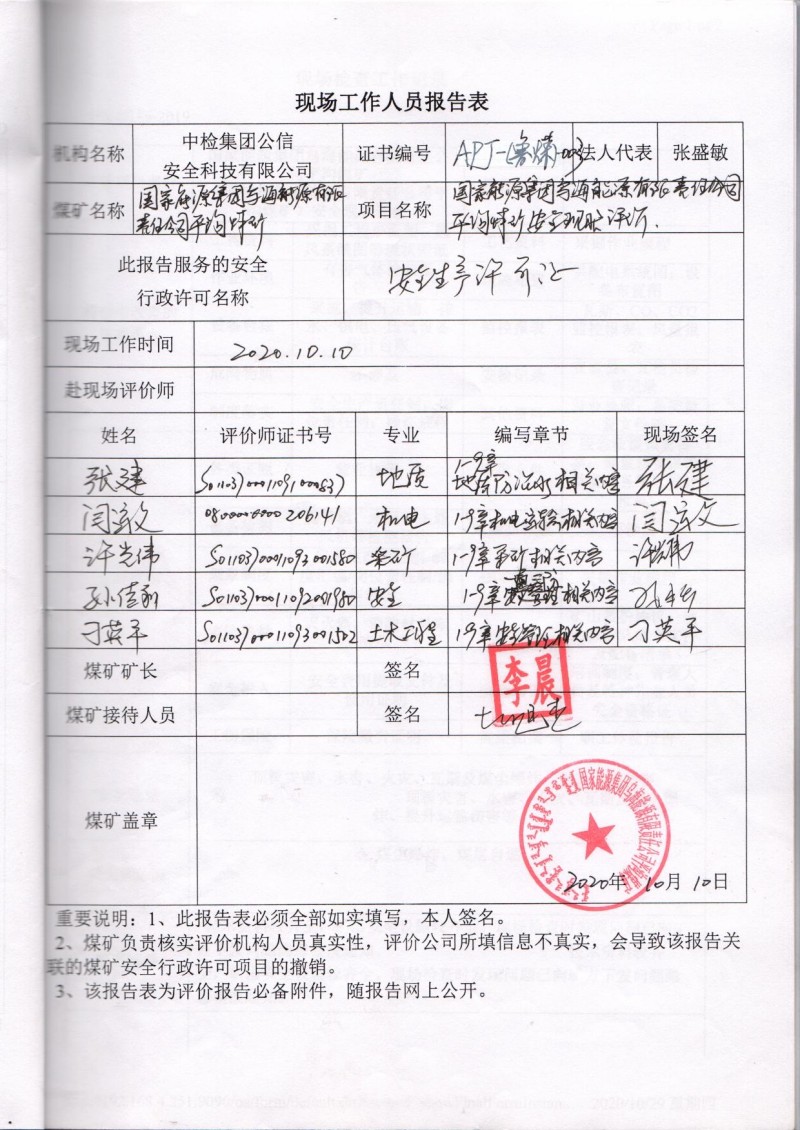 现场工作人员报告表
机构名称 中检集团公信 证书编号 APJ-(鲁煤)-003 法人代表 张盛敏
安全科技有限公司
煤矿名称 国家能源集团乌海能源有限 项目名称 国家能源集团乌海能源有限责任公司
责任公司平沟煤矿 平沟煤矿安全现状评价
此报告服务的安全 安全生产许可证
行政许可名称
现场工作时间 2020.10.10
赴现场评价师
姓名 评价师证书号 专业 编写章节 现场签名
张建 S011037000110191000837 地质 1-9章 地质防治水相关内容 张建
闫敏 0800000000206141 机电 1-9章机电运输相关内容
许光伟 S011037000110193001580 采矿 1-9章采矿相关内容 许光伟
孙佳 S011037000110192001980 安全 1-9章相关内容
刁英平 S011037000110193001502 土木工程 1-9章相关内容 刁英平
煤矿矿长 签名 李晨
煤矿接待人员 签名
煤矿盖章 国家能源集团乌海能源有限责任公司平沟煤矿
2020年10月10日
重要说明：1、此报告表必须全部如实填写，本人签名。
2、煤矿负责核实评价机构人员真实性，评价公司所填信息不真实，会导致该报告关
联的煤矿安全行政许可项目的撤销。
3、该报告表为评价报告必备附件，随报告网上公开。